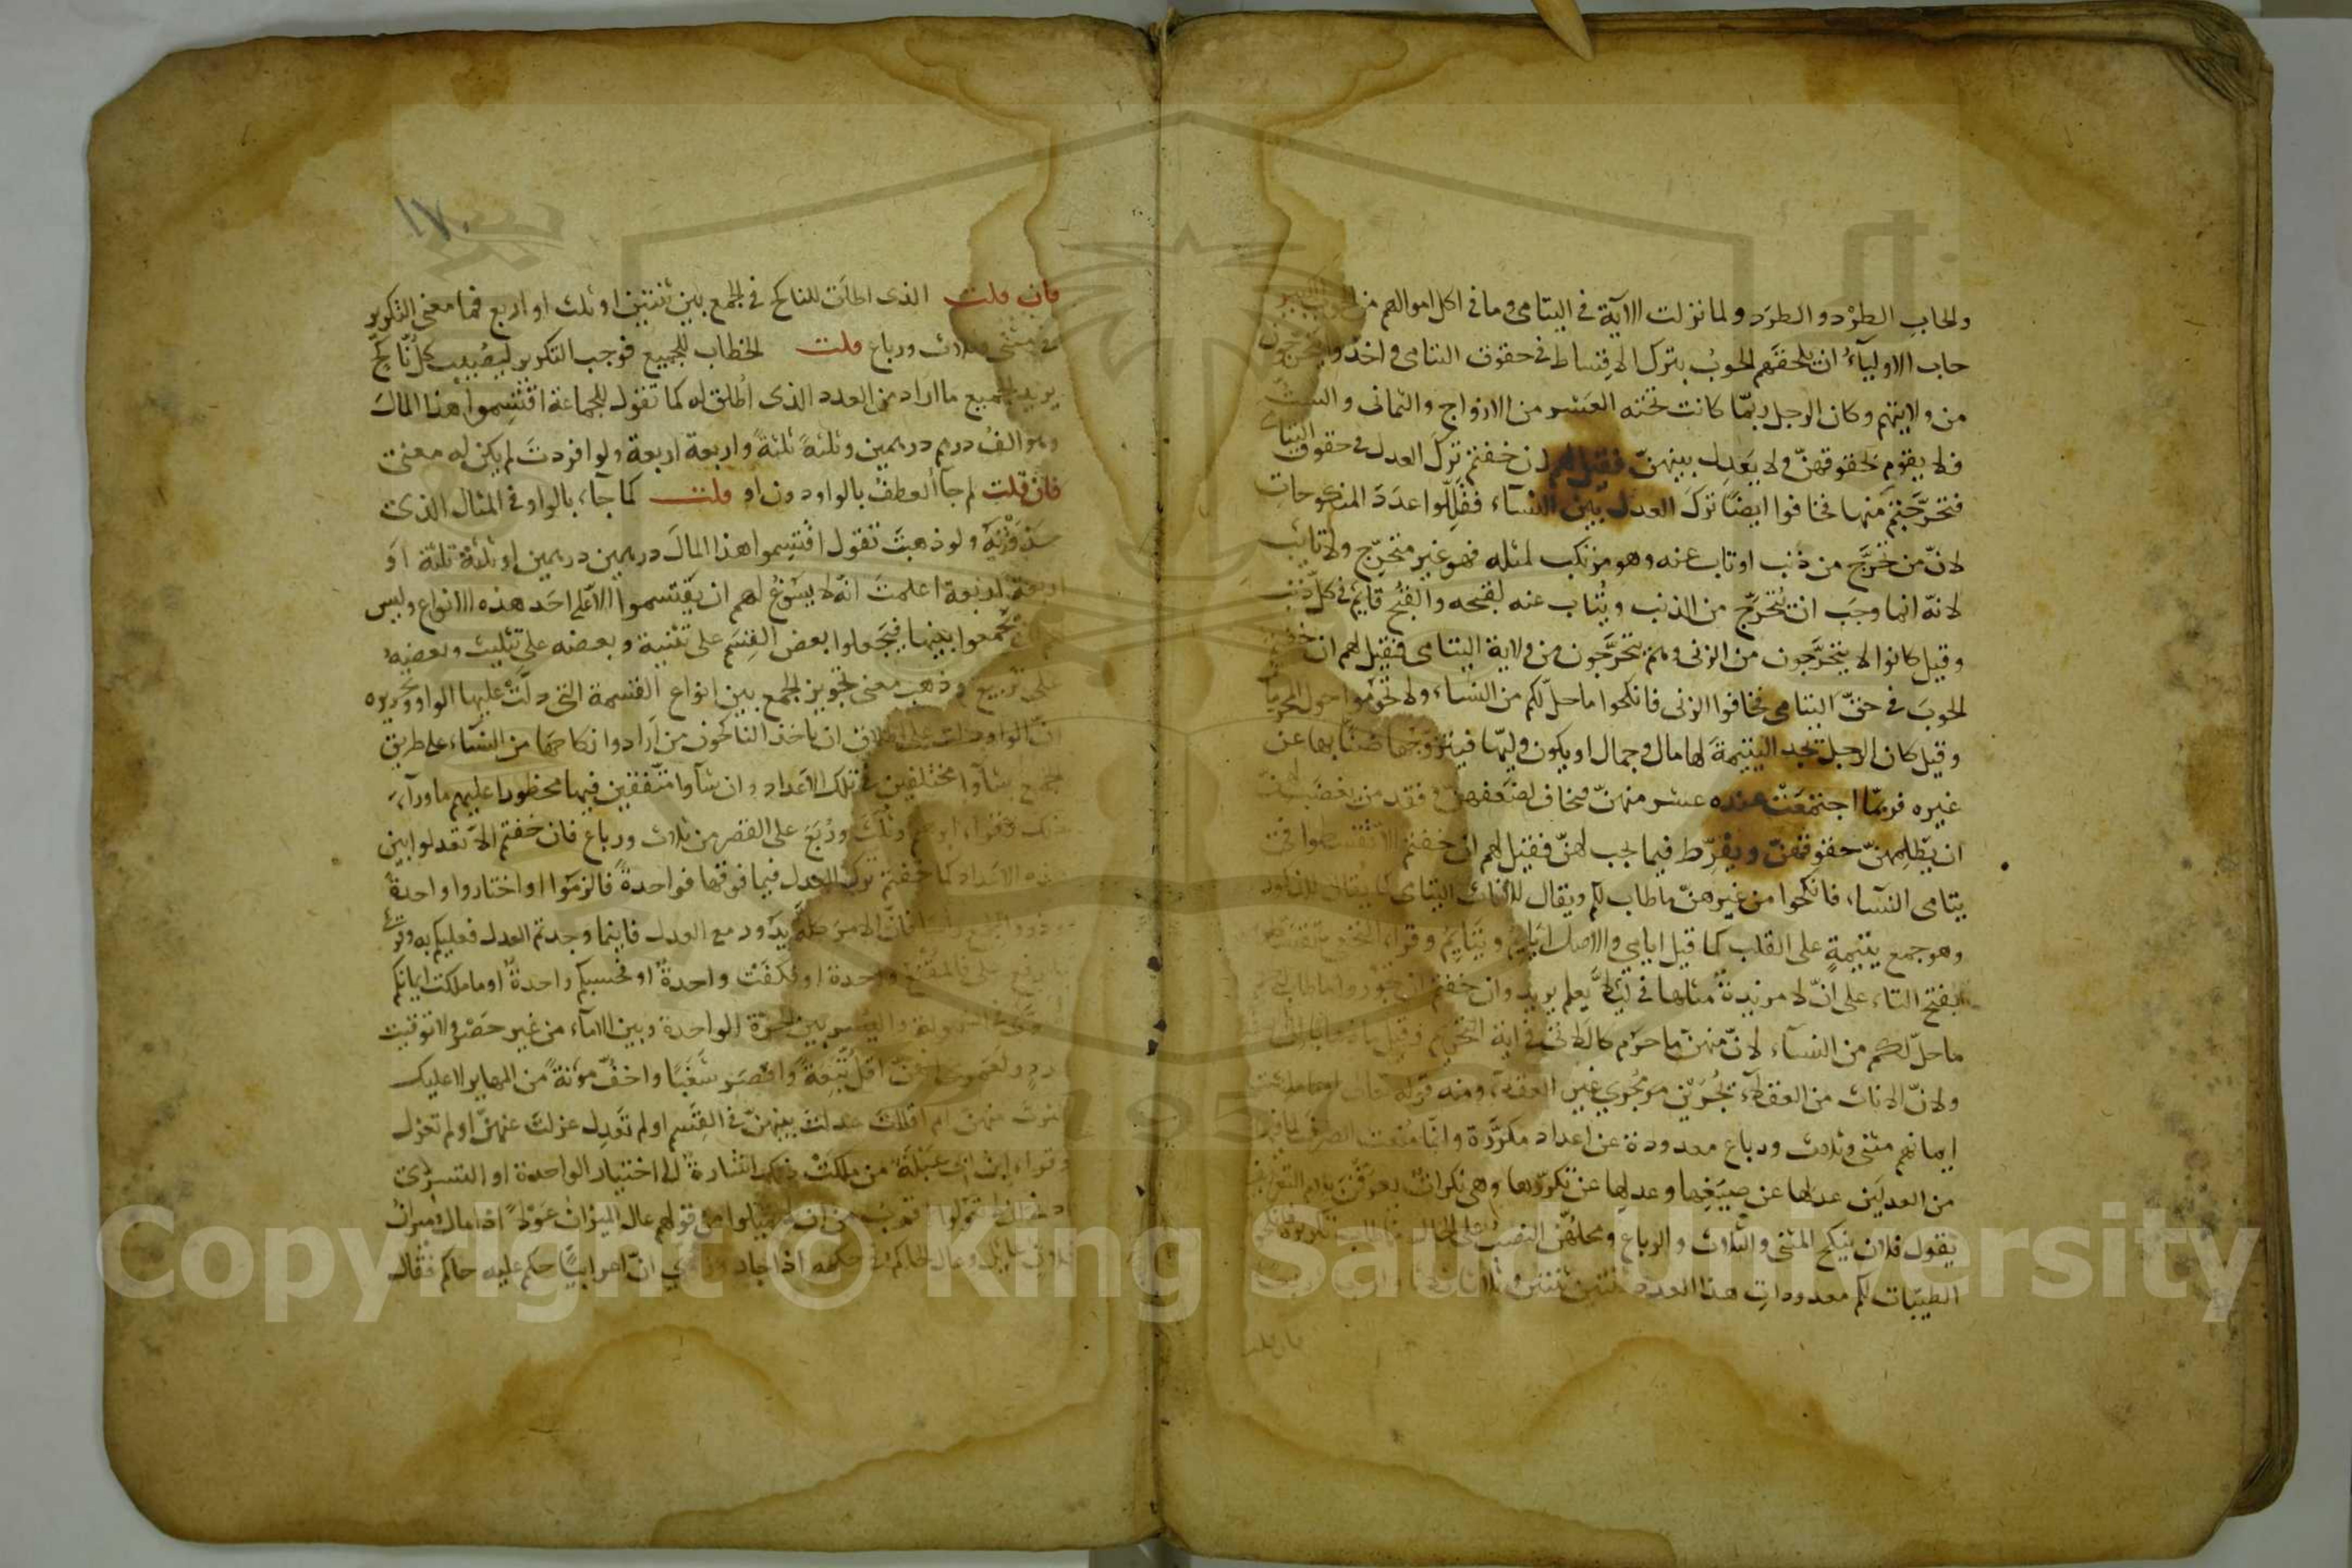 والحاب الطرد والطرد ولما نزلت الآية في اليتامى وما في اكل اموالهم من الحوب الكبير
خاف الاولياء ان يلحقهم الحوب بترك الاقساط في حقوق اليتامى واخذوا يتحرجون
من ولايتهم وكان الرجل ربما كانت تحته العشر من الازواج والثمان والست
فلا يقوم بحقوقهن ولا يعدل بينهن فقيل لهم ان خفتم ترك العدل في حقوق اليتامى
فتحرجتم منها فخافوا ايضا ترك العدل بين النساء فقللوا عدد المنكوحات
لان من تحرج من ذنب او تاب عنه وهو مرتكب لمثله فهو غير متحرج ولا تائب
لانه انما وجب ان يتحرج من الذنب ويتاب عنه لقبحه والقبح قائم في كل ذنب
وقيل كانوا لا يتحرجون من الزنى وهم يتحرجون من ولاية اليتامى فقيل لهم ان خفتم
الحوب في حق اليتامى فخافوا الزنى فانكحوا ما حل لكم من النساء ولا تحوموا حول المحرمات
وقيل كان الرجل يجد اليتيمة لها مال وجمال او يكون وليها فيتزوجها ضنا بها عن
غيره فربما اجتمعت عنده عشر منهن فيخاف لضعفهن وفقد من يغضب لهن
ان يظلمهن حقوقهن ويفرط فيما يجب لهن فقيل لهم ان خفتم الا تقسطوا في
يتامى النساء فانكحوا من غيرهن ما طاب لكم ويقال للاناث اليتامى كما يقال للذكور
وهو جمع يتيمة على القلب كما قيل ايامى والاصل ايائم ويتايم وقراء النخعي تقسطوا
بفتح التاء على ان لا مزيدة مثلها في لئلا يعلم يريد وان خفتم ان تجوروا ما طاب
ما حل لكم من النساء لان منهن ما حرم كاللاتي في اية التحريم وقيل ما
ولان الاناث من العقلاء يجرين مجرى غير العقلاء ومنه قوله تعالى او ما ملكت
ايمانهم مثنى وثلاث ورباع معدودة عن اعداد مكررة وانما منعت الصرف لما فيها
من العدلين عدلها عن صيغها وعدلها عن تكررها وهي نكرات يعرفن بلام التعريف
يقول فلان ينكح المثنى والثلاث والرباع ومحلهن النصب على الحال
الطيبات لكم معدودات هذا العدد ثنتين ثنتين وثلاثا
فان قلت
١٧٠
فان قلت الذي اطلق للناكح في الجمع بين ثنتين او ثلث او اربع فما معنى التكرير
في مثنى وثلاث ورباع قلت الخطاب للجميع فوجب التكرير ليصيب كل ناكح
يريد الجميع ما اراد من العدد الذي اطلق له كما تقول للجماعة اقتسموا هذا المال
وهو الف درهم درهمين وثلثة ثلثة واربعة اربعة ولو افردت لم يكن له معنى
فان قلت لم جاء العطف بالواو دون او قلت كما جاء بالواو في المثال الذي
حذفته ولو ذهبت تقول اقتسموا هذا المال درهمين درهمين او ثلثة ثلثة او
اربعة اربعة اعلمت انه لا يسوغ لهم ان يقتسموا الا على احد هذه الانواع وليس
لهم ان يجمعوا بينها فيجعلوا بعض القسم على تثنية وبعضه على تثليث وبعضه
على تربيع وذهب معنى تجويز الجمع بين انواع القسمة التي دلت عليها الواو وتحريره
ان الواو دلت على اطلاق ان ياخذ الناكحون من ارادوا نكاحها من النساء على طريق
الجمع ان شاوا مختلفين في تلك الاعداد وان شاوا متفقين فيها محظورا عليهم ما وراء
ذلك وقراء ابراهيم وثلث وربع على القصر من ثلاث ورباع فان خفتم الا تعدلوا بين
هذه الاعداد كما خفتم ترك العدل فيما فوقها فواحدة فالزموا او اختاروا واحدة
وذروا الجمع راسا فان الامر كله يدور مع العدل فاينما وجدتم العدل فعليكم به وقرئ
بالرفع على فالمقنع واحدة او فكفت واحدة او فحسبكم واحدة او ما ملكت ايمانكم
سوى في السهولة واليسر بين الحرة الواحدة وبين الاماء من غير حصر ولا توقيت
عدد ولعمري انهن اقل تبعة واقصر شغبا واخف مؤنة من المهاير لا عليك
اكثرت منهن ام اقللت عدلت بينهن في القسم او لم تعدل عزلت عنهن او لم تعزل
وقراء ابن ابي عبلة من ملكت ذلك اشارة الى اختيار الواحدة او التسري
ادنى ان لا تعولوا اقرب من ان لا تميلوا من قولهم عال الميزان عولا اذا مال وميزان
فلان عايل وعال الحاكم في حكمه اذا جار وروي ان اعرابيا حكم عليه حاكم فقال
Copyright © King Saud University
1957